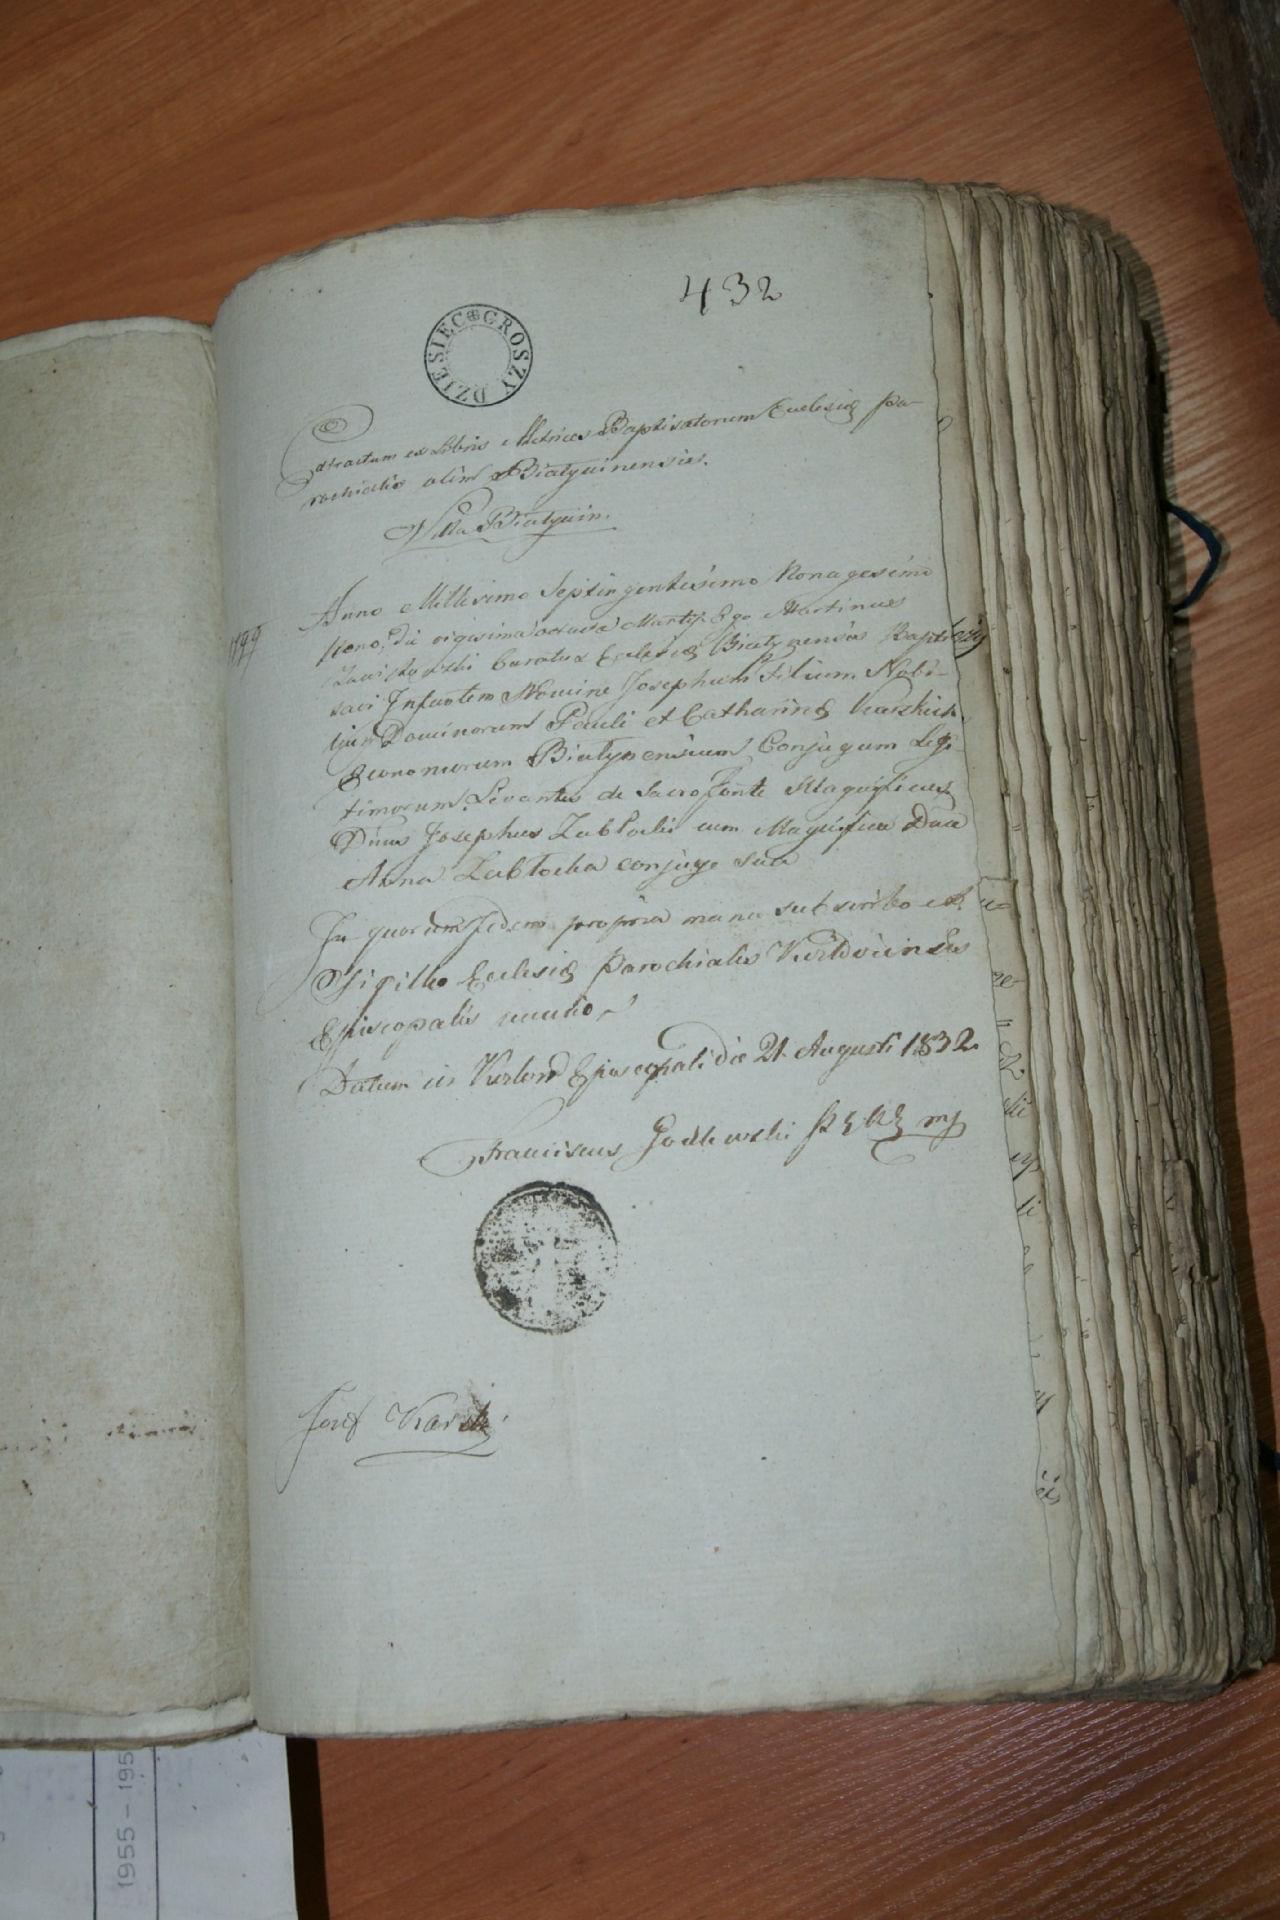 432
DZIESIEC GROSZY
Extractum ex Libris Metrices Baptisatorum Ecclesiæ Pa-
rochialis olim
Villa
Anno Millesimo Septingentesimo Nonagesimo
1799
Nono, die vigesima octava Martij. Ego Martinus
Curatus Ecclesiæ
savi Infantem Nomine Josephum Filium Nobi-
lium Dominorum Pauli et Catharinæ Karskich
Œconomorum Conjugum Legi-
timorum. Levantes de Sacro Fonte Magnificus
Dnus Josephus Zabłocki cum Magnifica Dna
Anna Zabłocka conjuge sua
In quorum fidem propria manu subscribo et
Sigillo Ecclesiæ Parochialis
Episcopalis munio
Datum in Episcopali die 21 Augusti 1832
Franciscus Godlewski mp
Józef Karski
1955 - 195